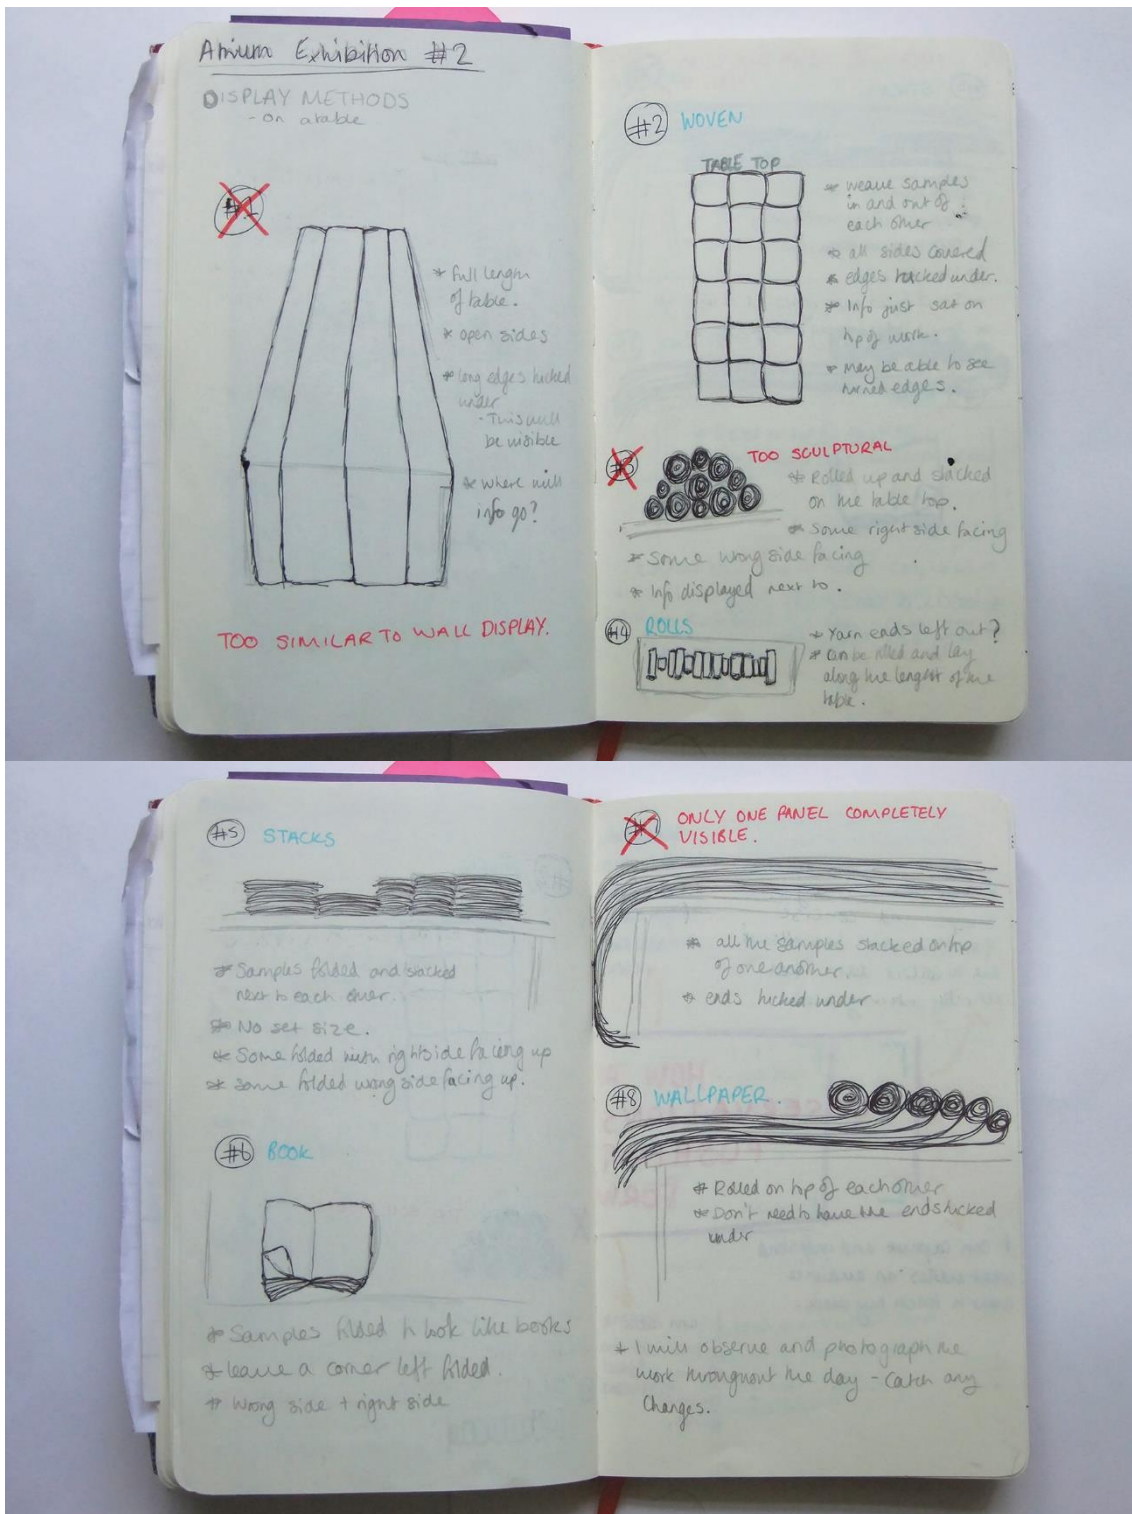 Atrium Exhibition #2
DISPLAY METHODS
- On a table
#1
* full length
of table.
* open sides
* long edges tucked
under
- This will
be visible
* Where will
info go?
TOO SIMILAR TO WALL DISPLAY.
#2 WOVEN
TABLE TOP
* weave samples
in and out of
each other
* all sides covered
* edges tucked under.
* Info just sat on
top of work.
* May be able to see
turned edges.
#3 TOO SCULPTURAL
* Rolled up and stacked
on the table top.
* Some right side facing
* Some wrong side facing
* Info displayed next to.
#4 ROLLS
* Yarn ends left out?
* Can be rolled and lay
along the lenght of the
table.
#5 STACKS
* Samples folded and stacked
next to each other.
* No set size.
* Some folded with rightside facing up
* Some folded wrong side facing up.
#6 BOOK
* Samples folded to look like books
* leave a corner left folded.
* Wrong side + right side
ONLY ONE PANEL COMPLETELY
VISIBLE.
* all the samples stacked on top
of one another.
* ends tucked under
#8 WALLPAPER.
* Rolled on top of each other
* Don't need to have the ends tucked
under
* I will observe and photograph the
work throughout the day - Catch any
Changes.